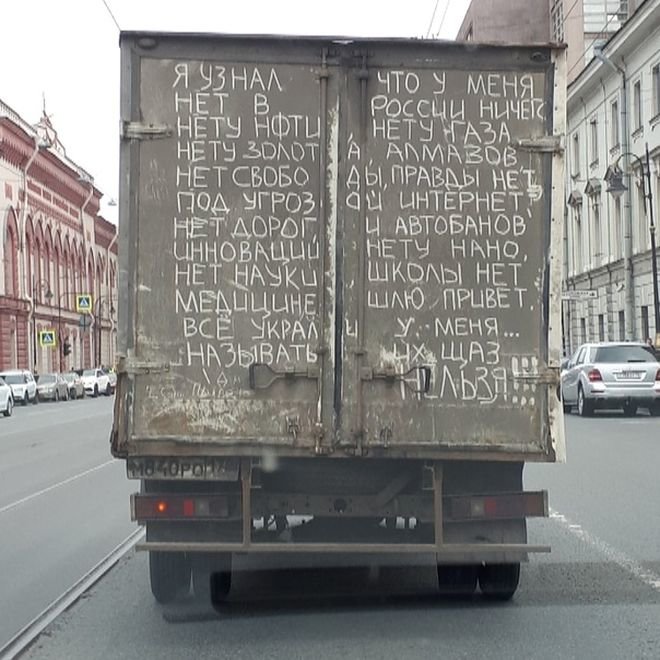 Я УЗНАЛ ЧТО У МЕНЯ
НЕТ В РОССИИ НИЧЕГ
НЕТУ НФТИ НЕТУ ГАЗА
НЕТУ ЗОЛОТА АЛМАЗОВ
НЕТ СВОБОДЫ, ПРАВДЫ НЕТ
ПОД УГРОЗОЙ ИНТЕРНЕТ
НЕТ ДОРОГ И АВТОБАНОВ
ИННОВАЦИЙ НЕТУ НАНО,
НЕТ НАУКИ ШКОЛЫ НЕТ
МЕДИЦИНЕ ШЛЮ ПРИВЕТ,
ВСЁ УКРАЛИ У МЕНЯ...
НАЗЫВАТЬ ИХ ЩАЗ
НЕЛЬЗЯ!!!